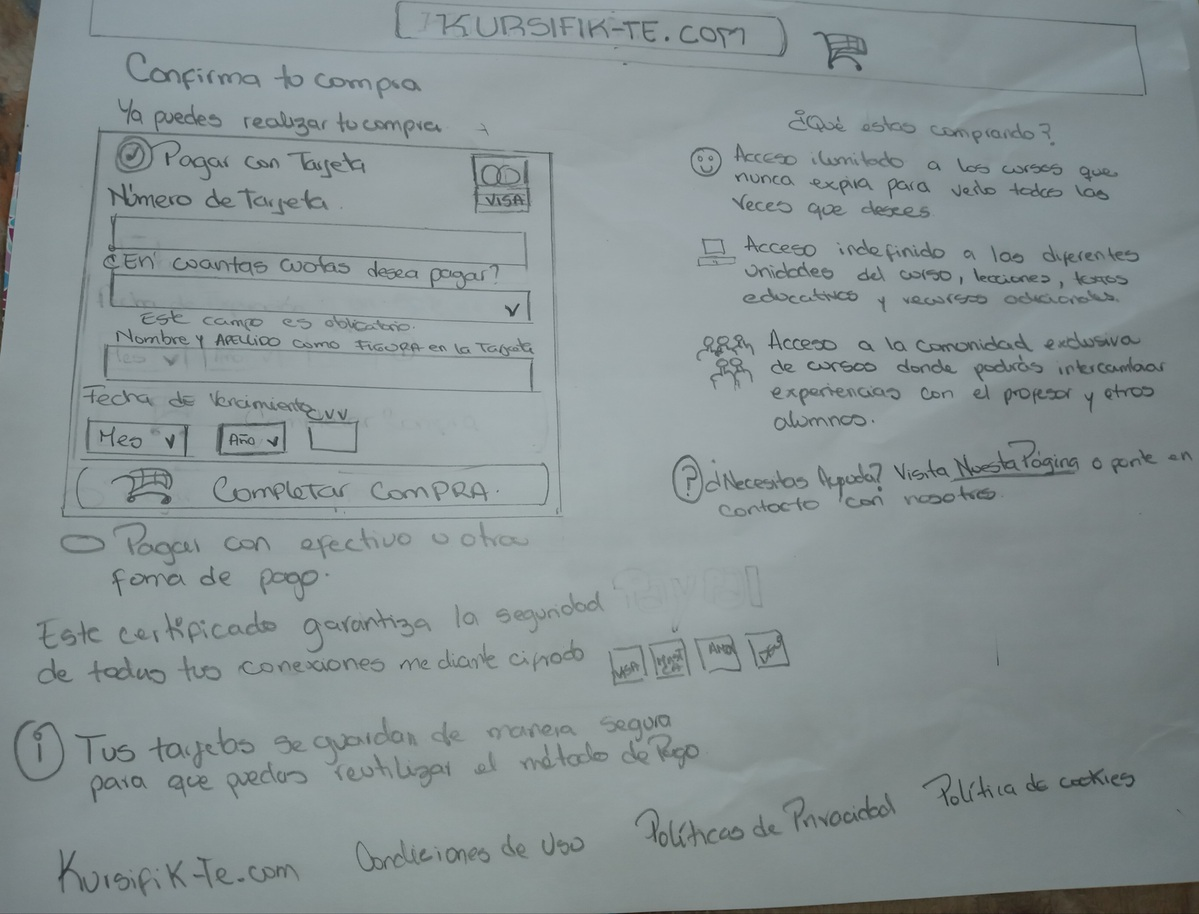 KURSIFIK-TE.COM
Confirma tu compra
Ya puedes realizar tu compra
Pagar con Tarjeta
VISA
Número de Tarjeta
¿En cuantas cuotas desea pagar?
Este campo es obligatorio.
Nombre y APELLIDO como FIGURA en la Tarjeta
Fecha de Vencimiento CVV
Mes
Año
Completar COMPRA.
Pagar con efectivo u otra
forma de pago.
Este certificado garantiza la seguridad
de todas tus conexiones mediante cifrado
VISA
i Tus tarjetas se guardan de manera segura
para que puedas reutilizar el método de Pago
¿Qué estas comprando?
Acceso ilimitado a los cursos que
nunca expira para verlo todas las
veces que desees.
Acceso indefinido a las diferentes
unidades del curso, lecciones, textos
educativos y recursos adicionales.
Acceso a la comunidad exclusiva
de cursos donde podrás intercambiar
experiencias con el profesor y otros
alumnos.
? ¿Necesitas Ayuda? Visita Nuestra Página o ponte en
contacto con nosotros.
Kursifik-Te.com Condiciones de Uso Políticas de Privacidad Política de cookies